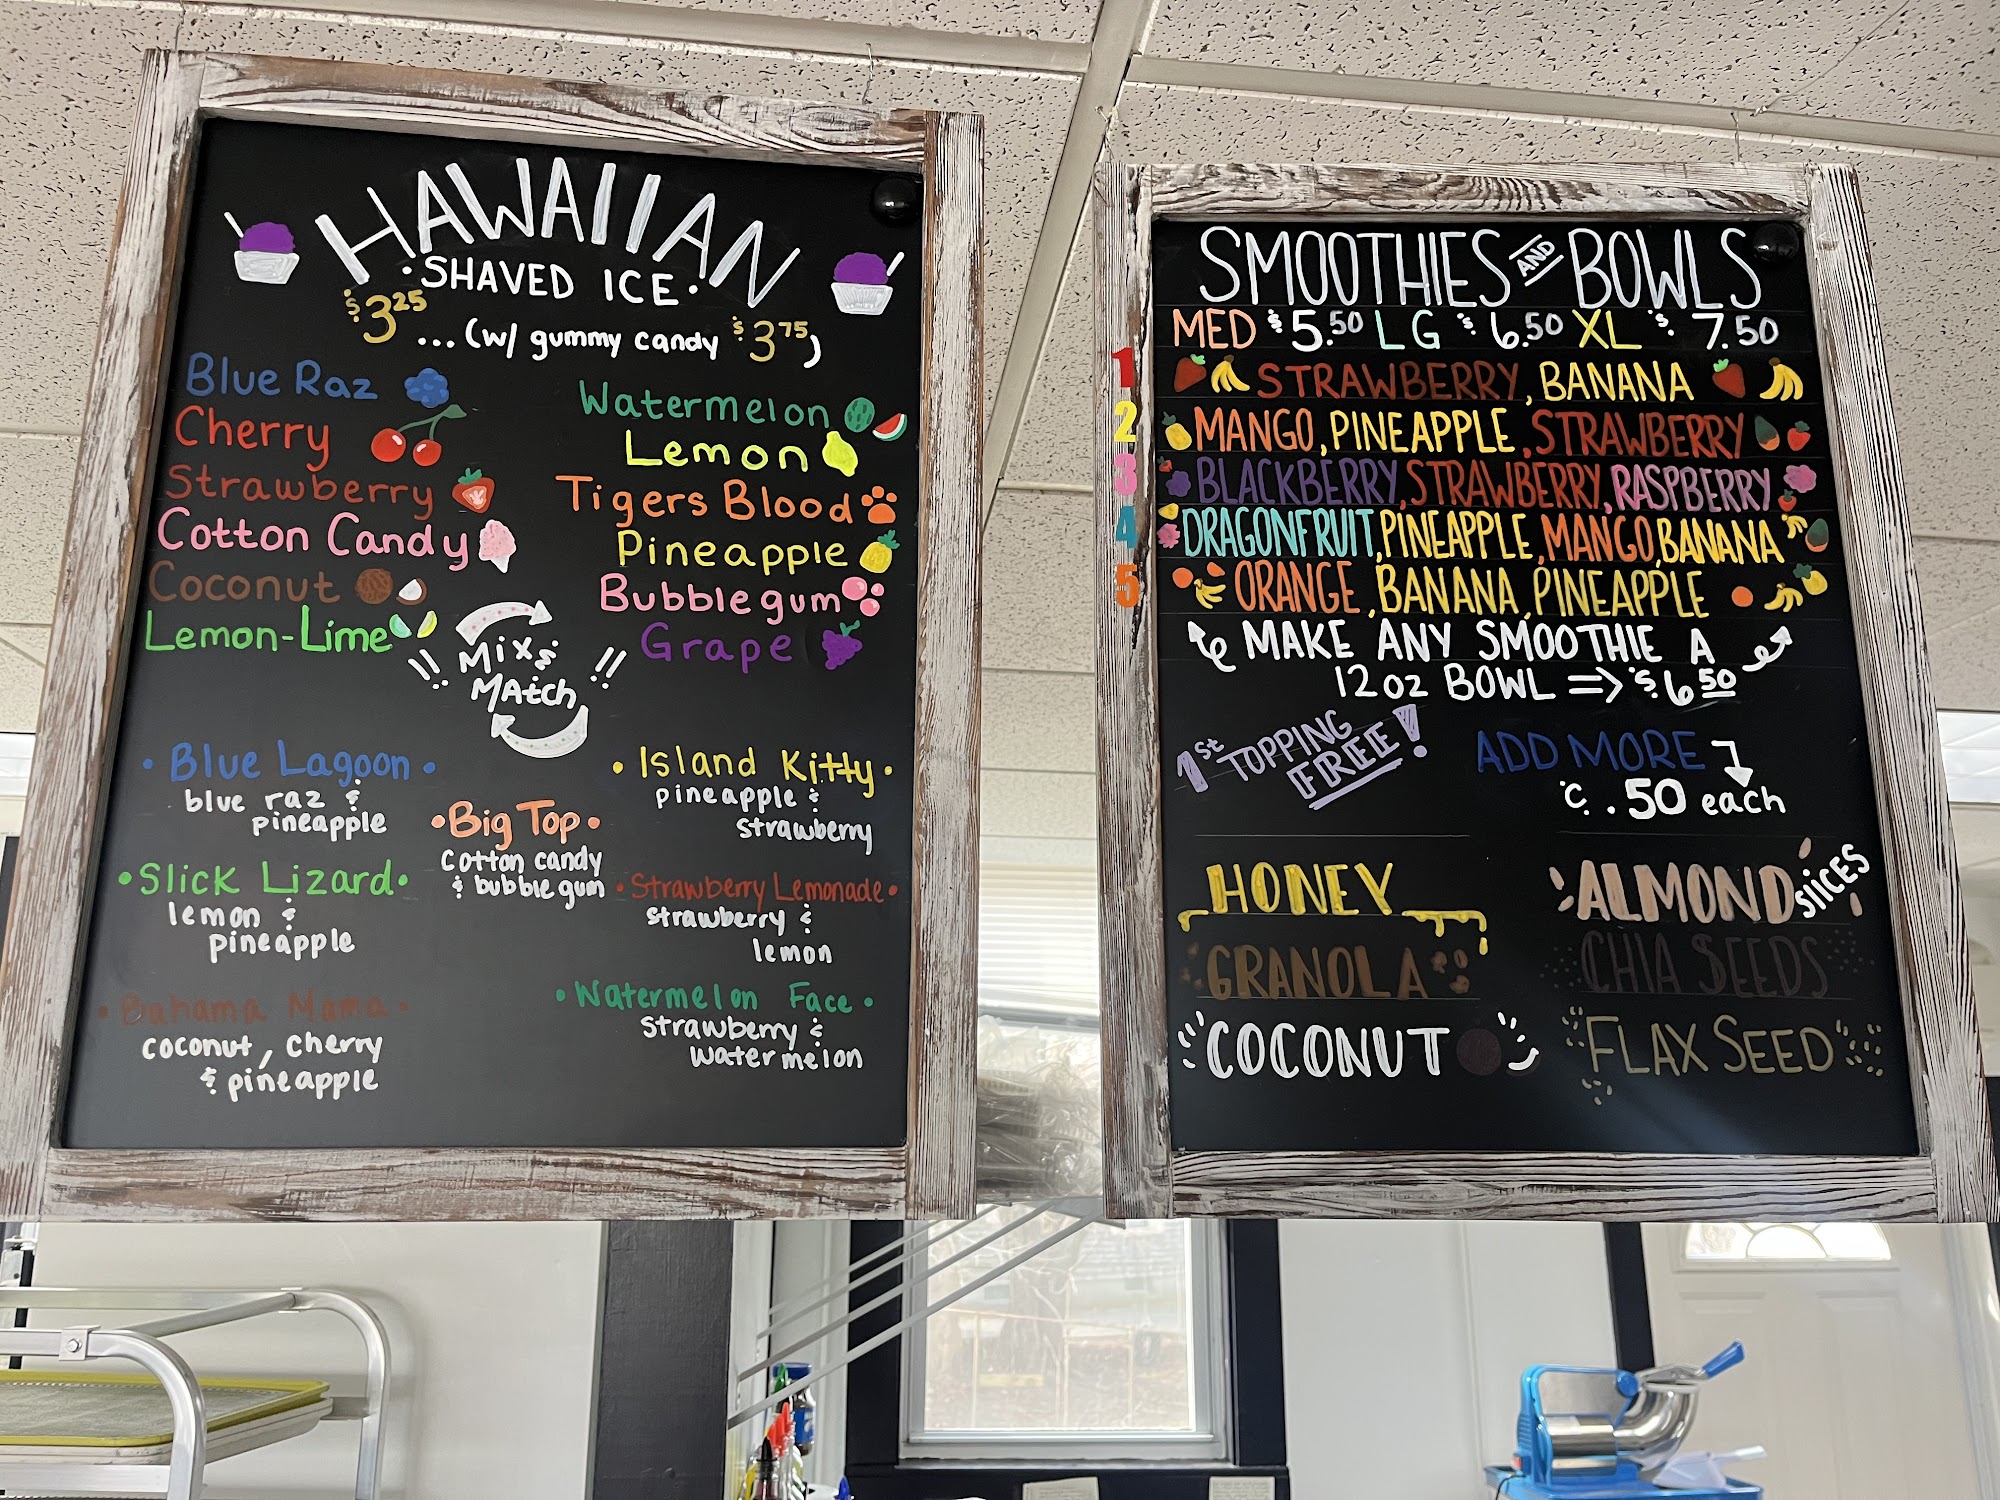 HAWAIIAN
·SHAVED ICE·
$3.25
...(w/ gummy candy $3.75)
Blue Raz
Cherry
Strawberry
Cotton Candy
Coconut
Lemon-Lime
Watermelon
Lemon
Tigers Blood
Pineapple
Bubblegum
Grape
!! Mix &
Match !!
·Blue Lagoon·
blue raz &
pineapple
·Slick Lizard·
lemon &
pineapple
·Bahama Mama·
coconut, cherry
& pineapple
·Big Top·
cotton candy
& bubblegum
·Island Kitty·
pineapple &
strawberry
·Strawberry Lemonade·
strawberry &
lemon
·Watermelon Face·
strawberry &
watermelon
SMOOTHIES AND BOWLS
MED $5.50 LG $6.50 XL $7.50
1 STRAWBERRY, BANANA
2 MANGO, PINEAPPLE, STRAWBERRY
3 BLACKBERRY, STRAWBERRY, RASPBERRY
4 DRAGONFRUIT, PINEAPPLE, MANGO, BANANA
5 ORANGE, BANANA, PINEAPPLE
MAKE ANY SMOOTHIE A
12oz BOWL => $6.50
1st TOPPING
FREE!
ADD MORE
¢.50 each
HONEY
GRANOLA
COCONUT
ALMOND SLICES
CHIA SEEDS
FLAX SEED